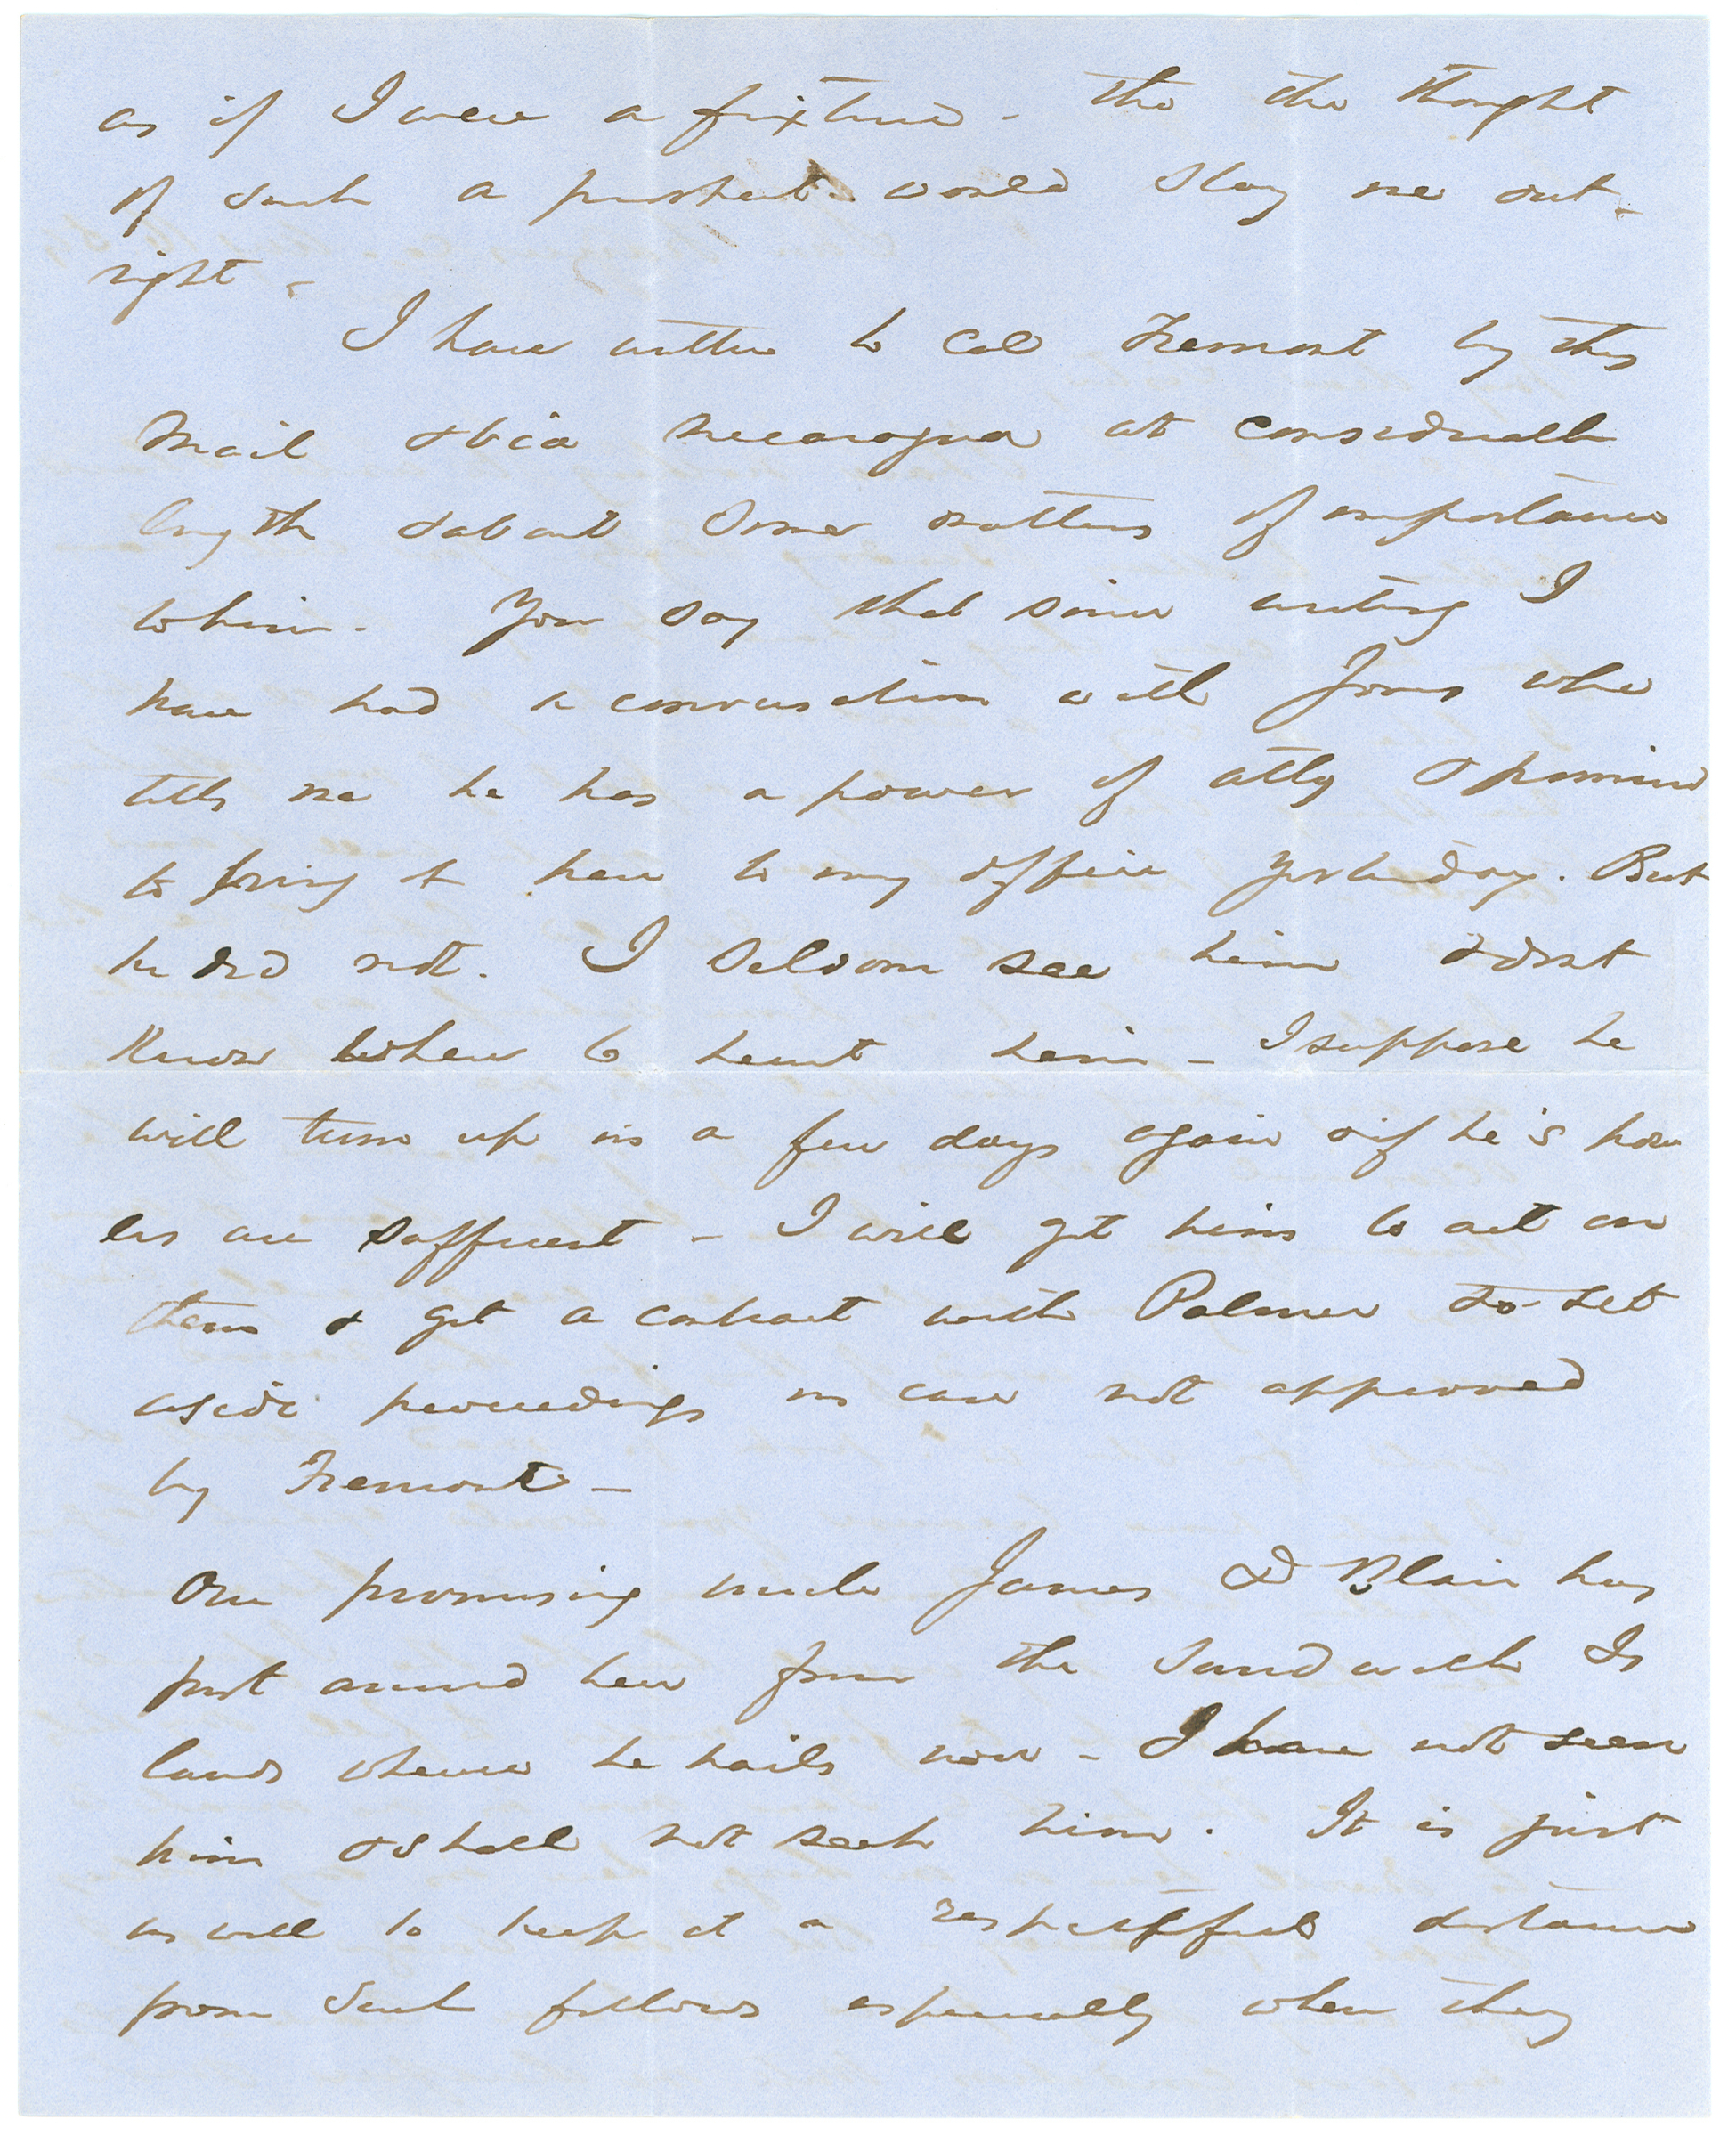 as if I were a fixture - tho the thought
of such a prospect would slay me out-
right -
I have written to Col Fremont by this
mail & via Nicaragua at considerable
length & about some matters of importance
to him. You say that since writing I
have had a conversation with Jones who
tells me he has a power of atty & promised
to bring it here to my office yesterday. But
he did not. I seldom see him & dont
know where to hunt him - I suppose he
will turn up in a few days again & if he's pow
ers are sufficient - I will get him to act on
them & get a contract with Palmer to set
aside proceedings in case not approved
by Fremont -
Our promising uncle James D Blair has
put around here from the Sandwich Is
lands where he hails now - I have not seen
him & shall not seek him. It is just
as well to keep at a respectful distance
from such fellows especially when they